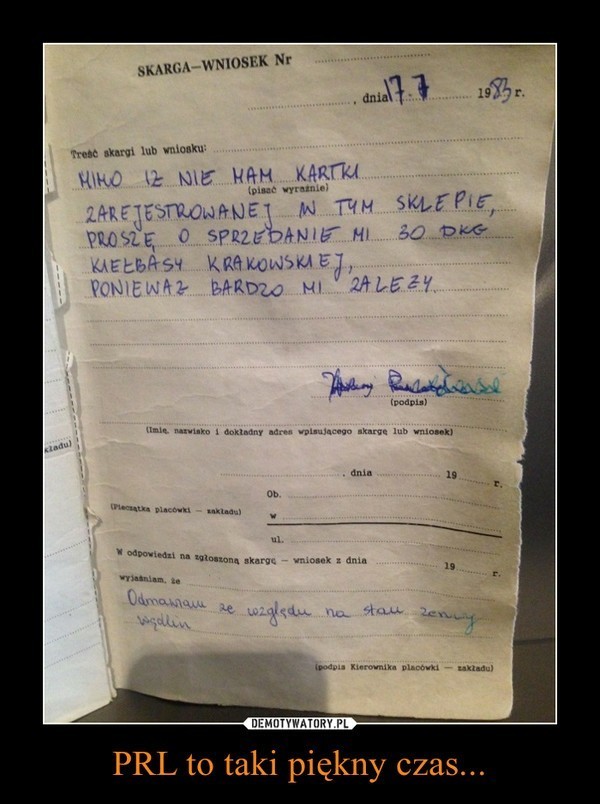 SKARGA—WNIOSEK Nr
, dnia 17.7 1983 r.
Treść skargi lub wniosku:
MIMO IŻ NIE MAM KARTKI
(pisać wyraźnie)
ZAREJESTROWANEJ W TYM SKLEPIE,
PROSZĘ O SPRZEDANIE MI 30 DKG
KIEŁBASY KRAKOWSKIEJ,
PONIEWAŻ BARDZO MI ZALEZY.
(podpis)
(Imię, nazwisko i dokładny adres wpisującego skargę lub wniosek)
kładu)
, dnia 19 r.
Ob.
(Pieczątka placówki — zakładu)
w
ul.
W odpowiedzi na zgłoszoną skargę — wniosek z dnia 19 r.
wyjaśniam, że
Odmawiam ze względu na stan
wędlin
(podpis Kierownika placówki — zakładu)
DEMOTYWATORY.PL
PRL to taki piękny czas...